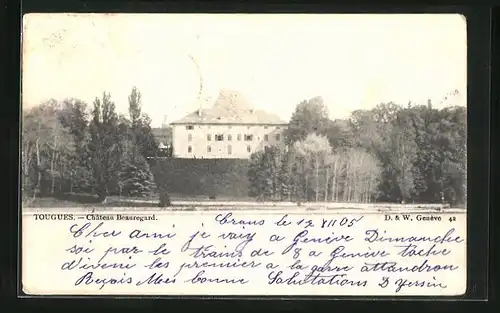 TOUGUES. - Château Beauregard.
D. & W. Genève 42
Crans le 12 XII 05
Cher ami je vaiy a Genève Dimanche
soi par le trains de 8 a Genève tache
d'iveni les premier a la garre attandron
Reçois Mes bonne Salutations D